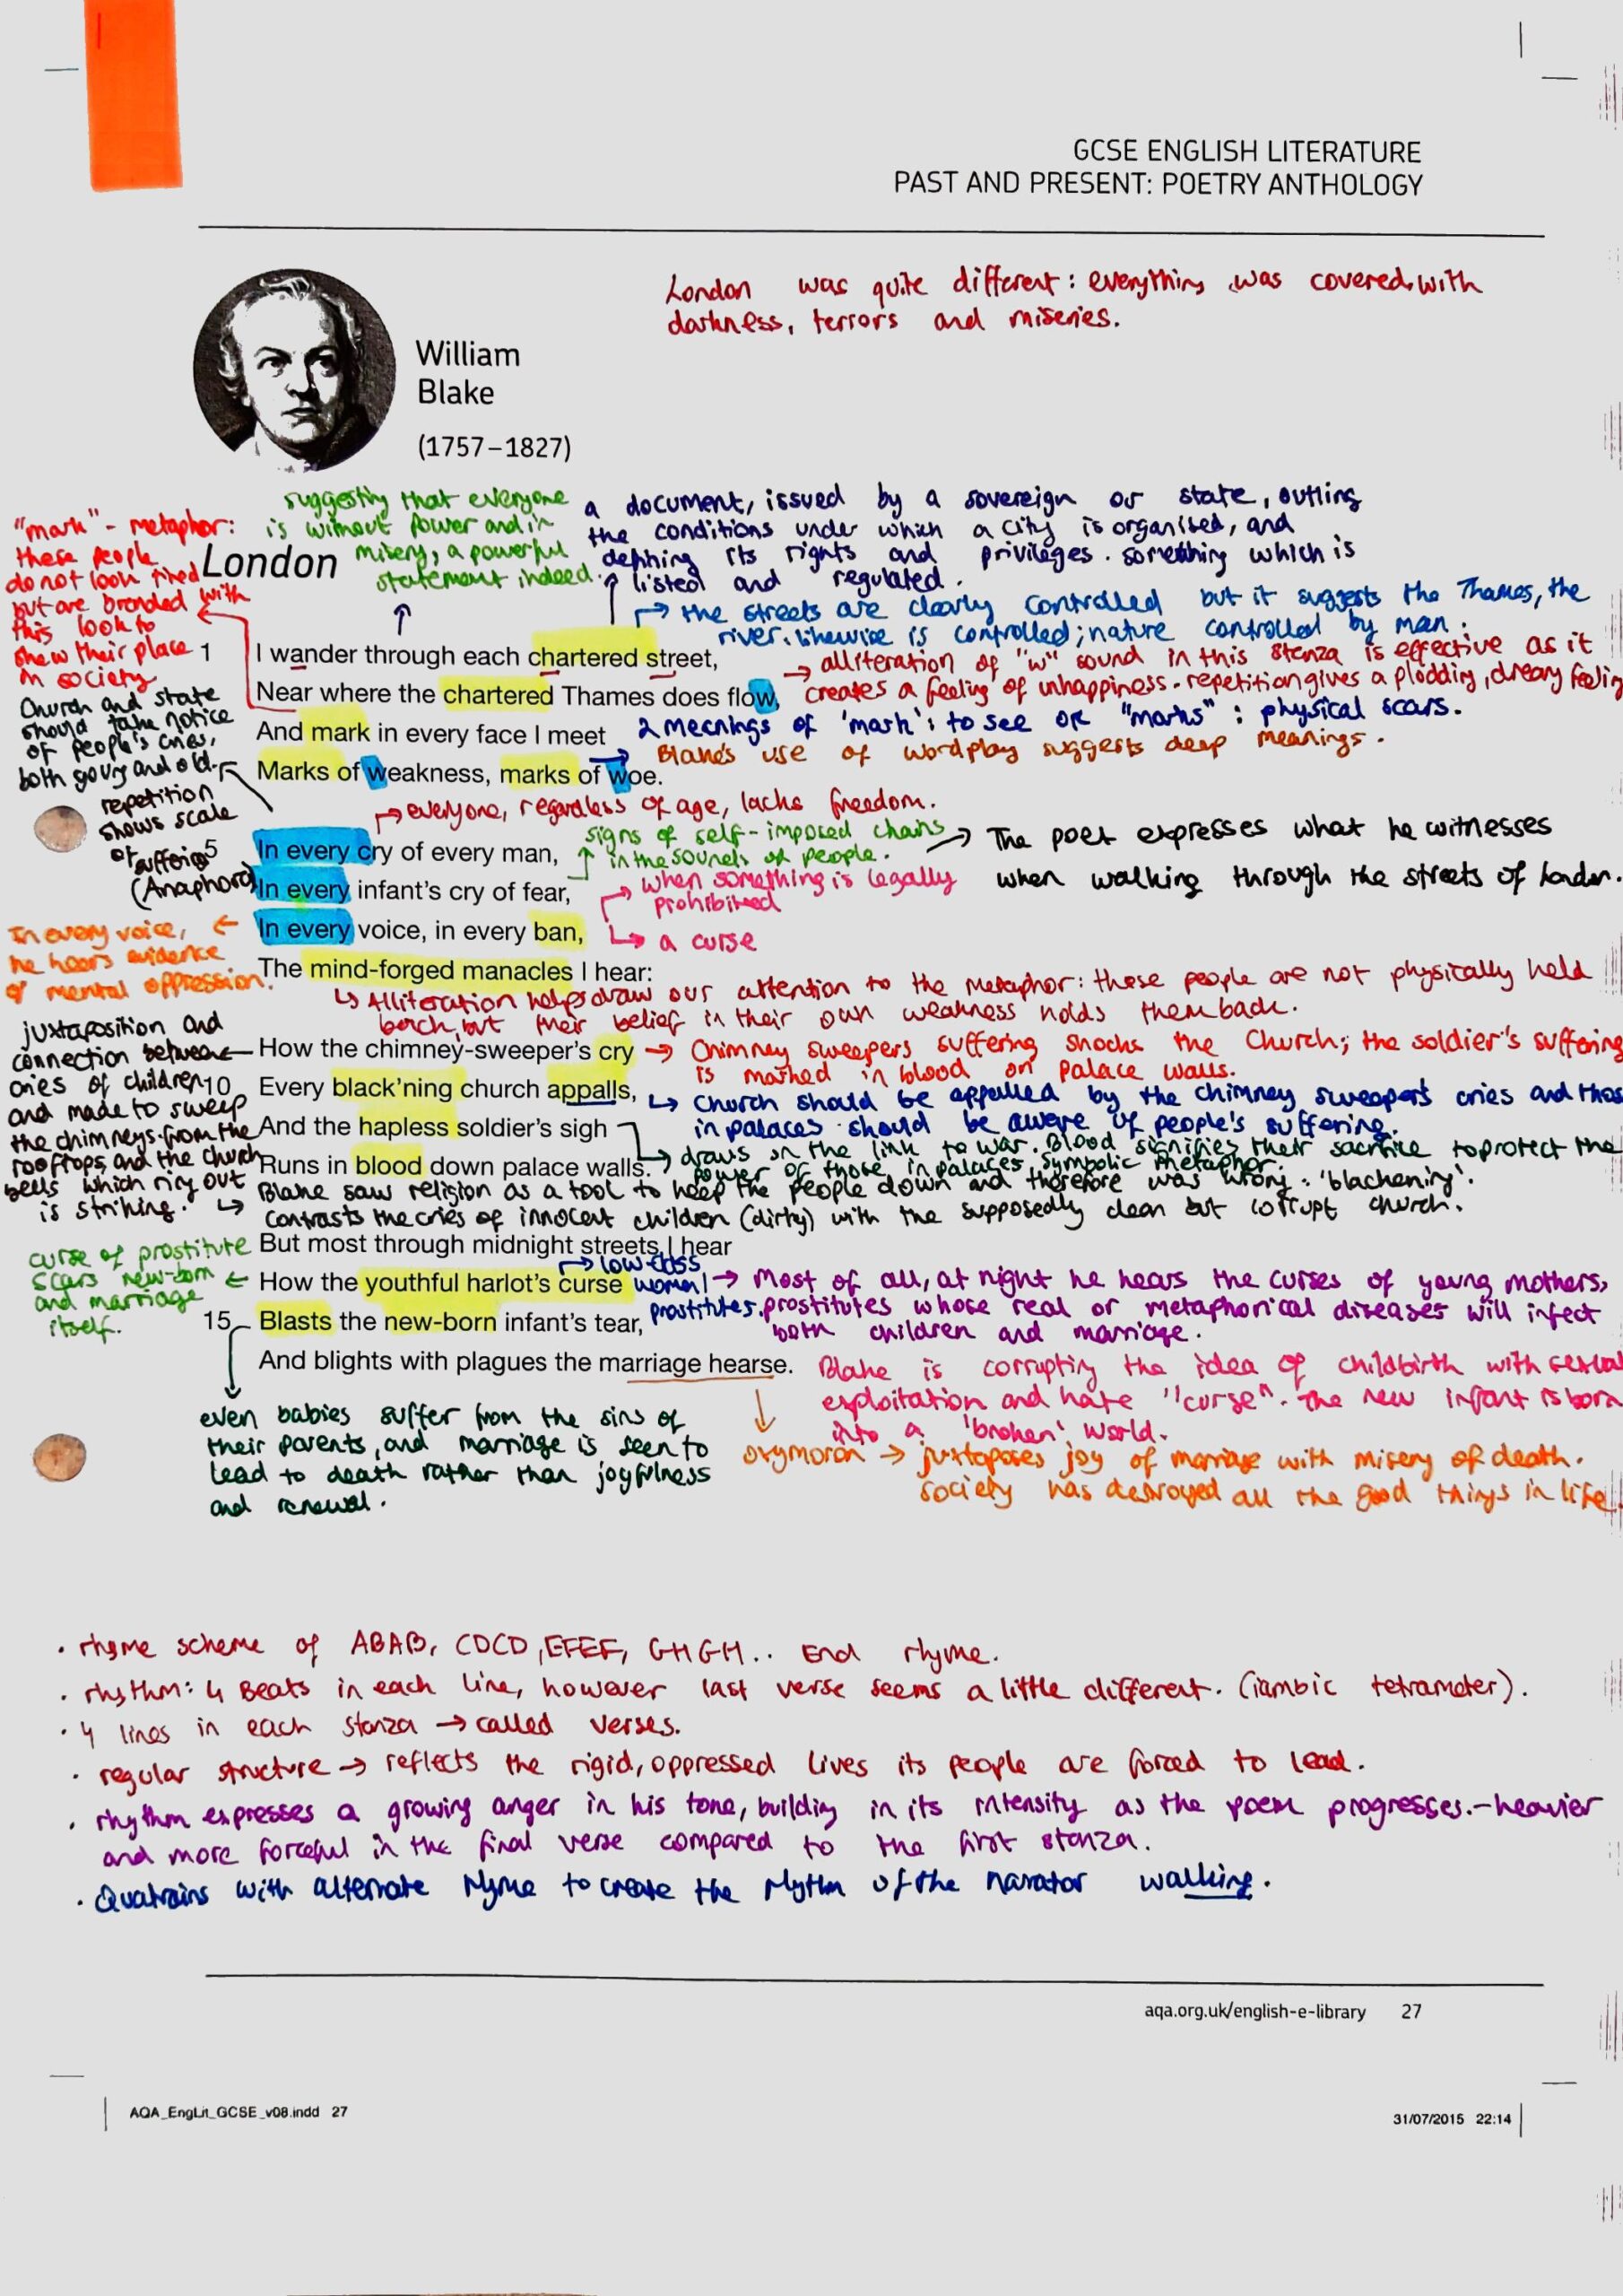 GCSE ENGLISH LITERATURE
PAST AND PRESENT: POETRY ANTHOLOGY
London was quite different: everything was covered with
darkness, terrors and miseries.
William
Blake
(1757–1827)
suggesting that everyone
is without power and in
misery, a powerful
statement indeed.
a document, issued by a sovereign or state, outling
the conditions under which a city is organised, and
defining its rights and privileges. something which is
listed and regulated.
"mark" - metaphor:
these people
do not look tired
but are branded with
this look to
show their place
in society
London
→ the streets are clearly controlled but it suggests the Thames, the
river, likewise is controlled; nature controlled by man.
1 I wander through each chartered street,
Near where the chartered Thames does flow,
And mark in every face I meet
Marks of weakness, marks of woe.
→ alliteration of "w" sound in this stanza is effective as it
creates a feeling of unhappiness. repetition gives a plodding, dreary feeling
2 meanings of 'mark': to see OR "marks": physical scars.
→ Blake's use of wordplay suggests deep meanings.
Church and state
should take notice
of people's cries,
both young and old.
repetition
shows scale
of suffering
(Anaphora)
→ everyone, regardless of age, lacks freedom.
signs of self-imposed chains
in the sounds of people.
→ The poet expresses what he witnesses
when walking through the streets of London.
5 In every cry of every man,
In every infant's cry of fear,
In every voice, in every ban,
The mind-forged manacles I hear:
→ when something is legally
prohibited
→ a curse
In every voice, ←
he hears evidence
of mental oppression.
↳ Alliteration helps draw our attention to the metaphor: these people are not physically held
back, but their belief in their own weakness holds them back.
juxtaposition and
connection between
cries of children
and made to sweep
the chimneys from the
rooftops, and the church
bells which ring out
is striking.
How the chimney-sweeper's cry
10 Every black'ning church appalls,
And the hapless soldier's sigh
Runs in blood down palace walls.
→ Chimney sweepers suffering shocks the Church; the soldier's suffering
is marked in blood on palace walls.
↳ church should be appalled by the chimney sweeper's cries and those
in palaces should be aware of people's suffering.
draws on the link to war. Blood signifies their sacrifice to protect the
power of those in palaces. Symbolic metaphor.
Blake saw religion as a tool to keep the people down and therefore was wrong: 'blackening'.
↳ Contrasts the cries of innocent children (dirty) with the supposedly clean but corrupt church.
But most through midnight streets I hear
How the youthful harlot's curse
15 Blasts the new-born infant's tear,
And blights with plagues the marriage hearse.
curse of prostitute
scars new-born ←
and marriage
itself.
→ low-class
women/
prostitutes.
→ Most of all, at night he hears the curses of young mothers,
prostitutes whose real or metaphorical diseases will infect
both children and marriage.
Blake is corrupting the idea of childbirth with sexual
exploitation and hate "curse". The new infant is born
into a 'broken' world.
even babies suffer from the sins of
their parents, and marriage is seen to
lead to death rather than joyfulness
and renewal.
oxymoron → juxtaposes joy of marriage with misery of death.
society has destroyed all the good things in life.
· rhyme scheme of ABAB, CDCD, EFEF, GHGH.. End rhyme.
· rhythm: 4 Beats in each line, however last verse seems a little different. (iambic tetrameter).
· 4 lines in each stanza → called verses.
· regular structure → reflects the rigid, oppressed lives its people are forced to lead.
· rhythm expresses a growing anger in his tone, building in its intensity as the poem progresses. - heavier
and more forceful in the final verse compared to the first stanza.
· Quatrains with alternate rhyme to create the rhythm of the narrator walking.
aqa.org.uk/english-e-library 27
AQA_EngLit_GCSE_v08.indd 27
31/07/2015 22:14